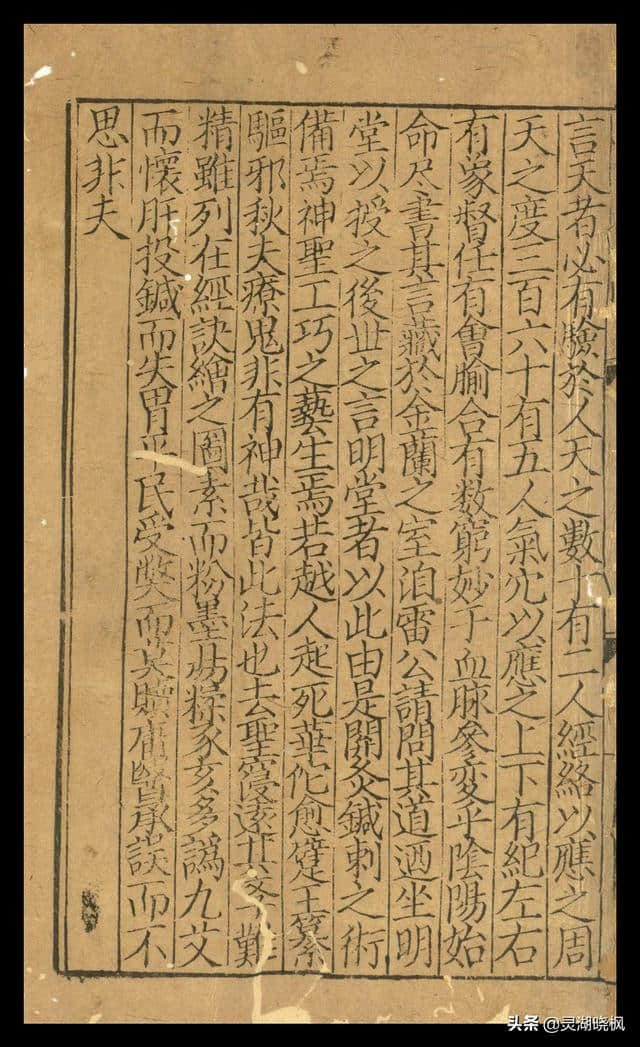 言天者必有驗於人天之數十有二人經絡以應之周
天之度三百六十有五人氣穴以應之上下有紀左右
有象督任有會腧合有数窮妙于血脉參変乎陰陽始
命尽書其言藏於金蘭之室洎雷公請問其道迺坐明
堂以授之後世之言明堂者以此由是關灸鍼刺之術
備焉神聖工巧之藝生焉若越人起死華佗愈躄王纂
驅邪秋夫療鬼非有神哉皆此法也去聖寖遠難
精雖列在經訣繪之圖素而粉墨易糅豕亥多譌九艾
而懷肝投鍼而失胃平民受弊而莫贖庸醫承誤而不
思非夫
头条 @灵湖晓枫